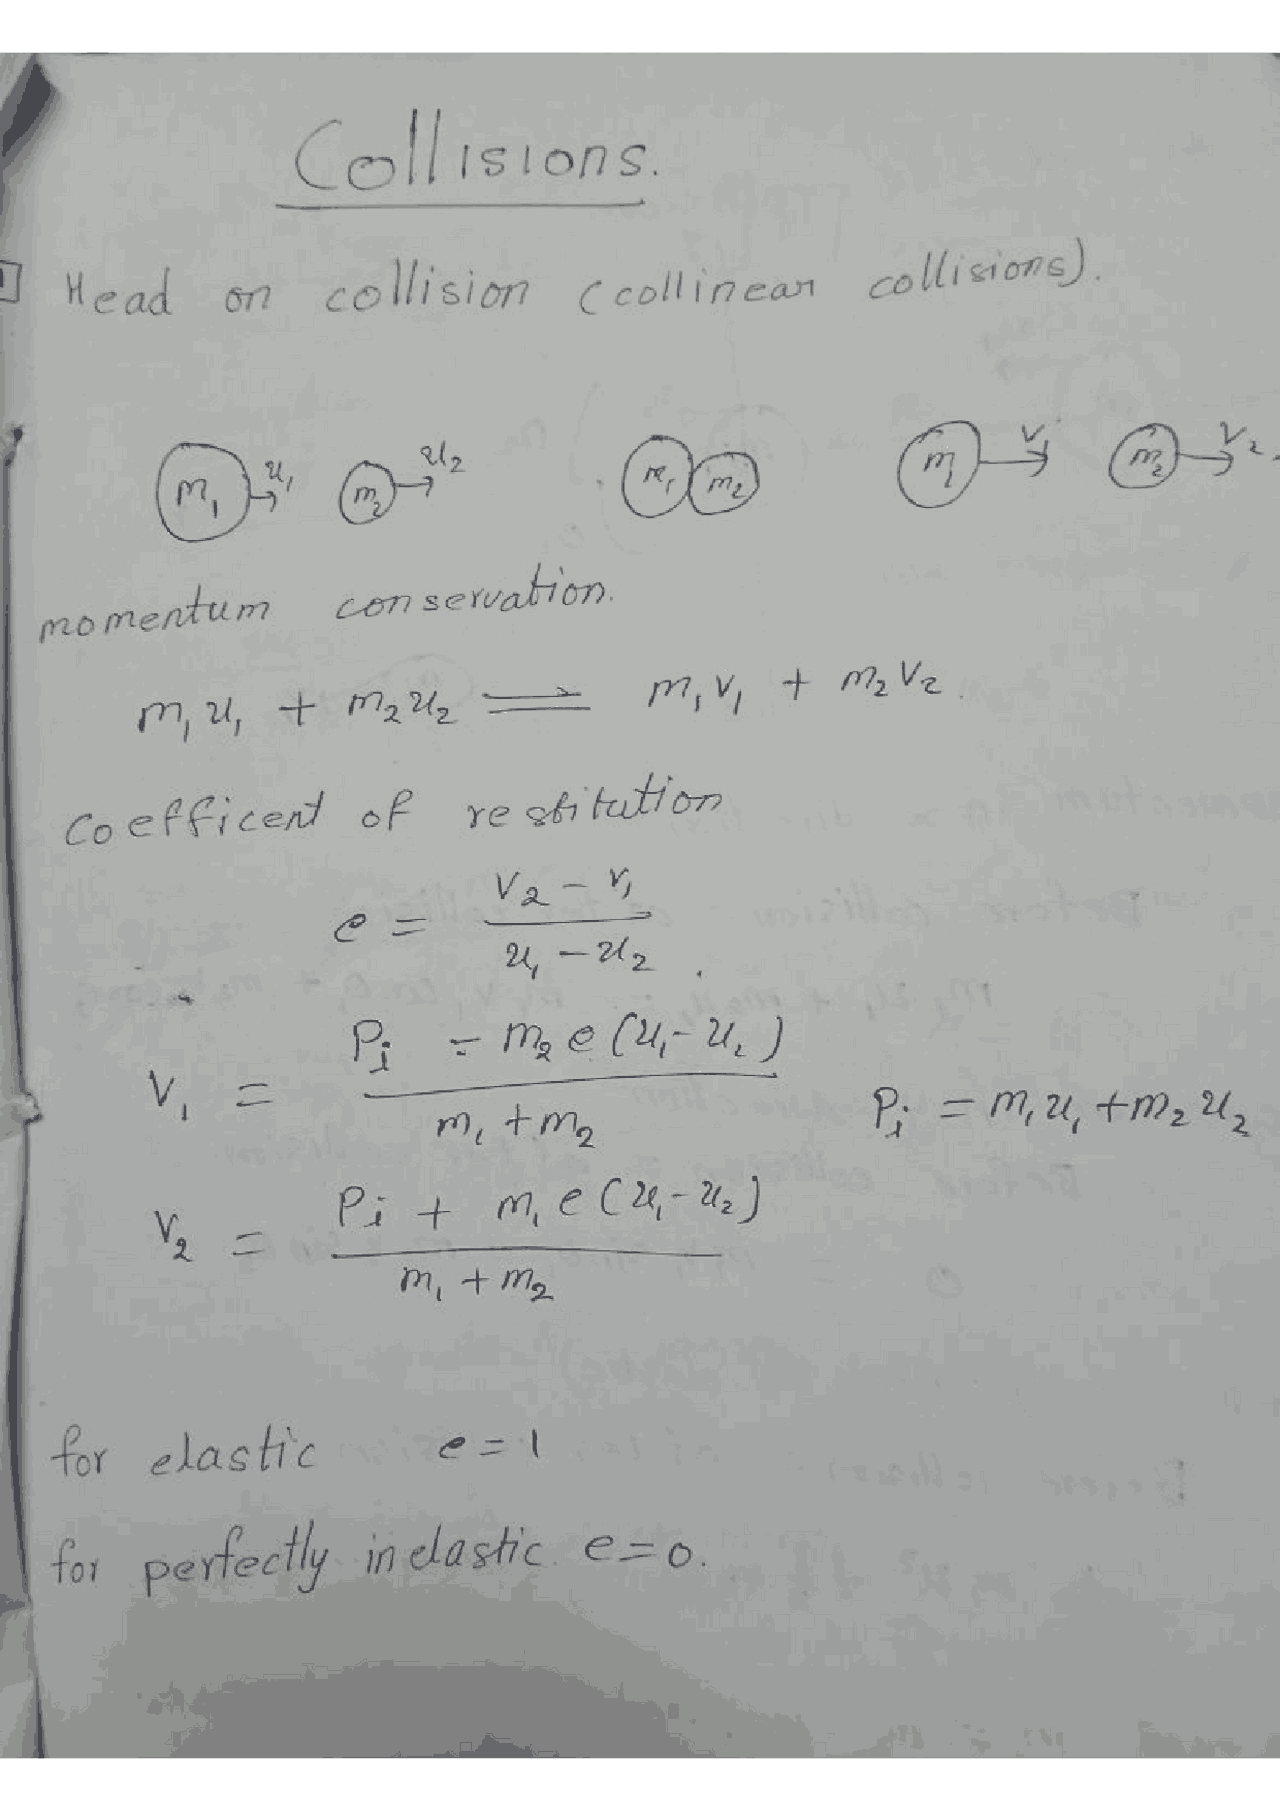 Collisions.
Head on collision (collinear collisions).
m₁ u₁ m₂ u₂ m₁ m₂ m₁ v₁ m₂ v₂
momentum conservation.
m₁u₁ + m₂u₂ = m₁v₁ + m₂v₂.
Coefficent of restitution
e = (v₂ - v₁) / (u₁ - u₂).
v₁ = (Pᵢ - m₂e(u₁ - u₂)) / (m₁ + m₂) Pᵢ = m₁u₁ + m₂u₂
v₂ = (Pᵢ + m₁e(u₁ - u₂)) / (m₁ + m₂)
for elastic e = 1
for perfectly inelastic e = 0.